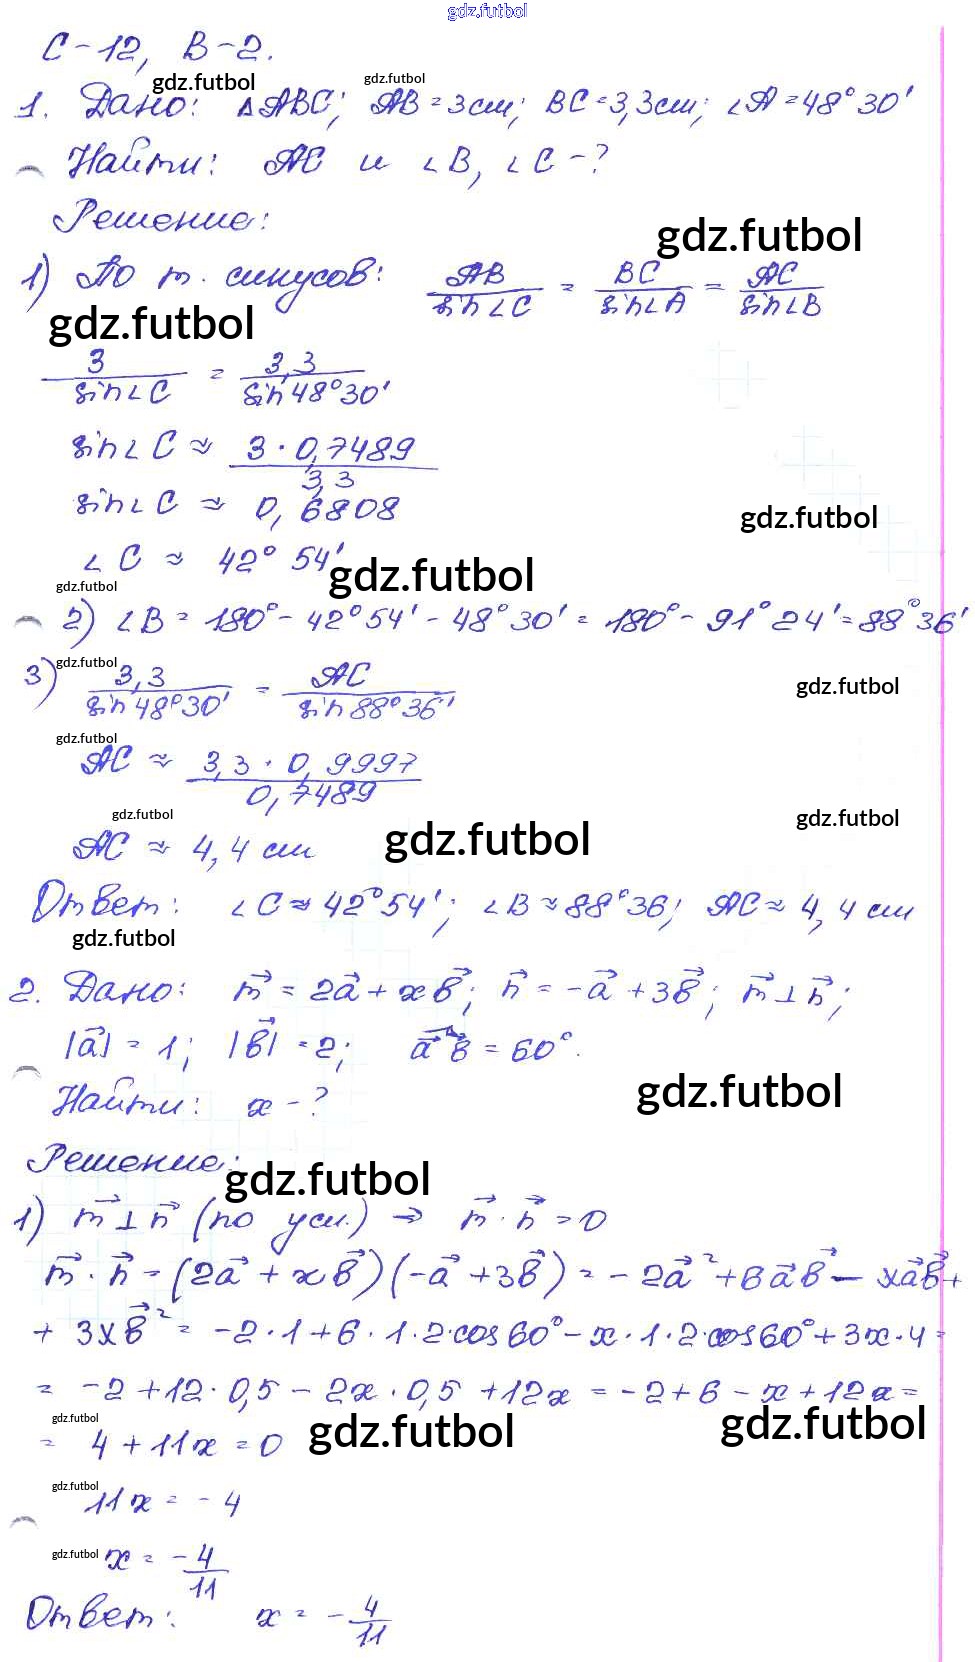 gdz.futbol
С-12, В-2.
gdz.futbol gdz.futbol
1. Дано: △ABC; AB = 3см; BC = 3,3см; ∠A = 48°30'
Найти: AC и ∠B, ∠C - ?
Решение:
gdz.futbol
1) По т. синусов: AB/sin∠C = BC/sin∠A = AC/sin∠B
gdz.futbol
3/sin∠C = 3,3/sin48°30'
sin∠C ≈ 3·0,7489/3,3
sin∠C ≈ 0,6808
gdz.futbol
∠C ≈ 42° 54'
gdz.futbol
gdz.futbol
2) ∠B = 180° - 42°54' - 48°30' = 180° - 91°24' = 88°36'
gdz.futbol
3) 3,3/sin48°30' = AC/sin88°36'
gdz.futbol
gdz.futbol
AC ≈ 3,3·0,9997/0,7489
gdz.futbol gdz.futbol
AC ≈ 4,4 см
gdz.futbol
Ответ: ∠C ≈ 42°54'; ∠B ≈ 88°36; AC ≈ 4,4 см
gdz.futbol
2. Дано: m⃗ = 2a⃗ + xв⃗; n⃗ = -a⃗ + 3в⃗; m⃗ ⊥ n⃗;
|a⃗| = 1; |в⃗| = 2; a⃗^в⃗ = 60°.
gdz.futbol
Найти: x - ?
Решение:
gdz.futbol
1) m⃗ ⊥ n⃗ (по усл.) → m⃗ · n⃗ = 0
m⃗ · n⃗ = (2a⃗ + xв⃗)(-a⃗ + 3в⃗) = -2a⃗² + 6a⃗в⃗ - xa⃗в⃗ +
+ 3xв⃗² = -2·1 + 6·1·2·cos60° - x·1·2·cos60° + 3x·4 =
= -2 + 12·0,5 - 2x·0,5 + 12x = -2 + 6 - x + 12x =
gdz.futbol gdz.futbol gdz.futbol
= 4 + 11x = 0
gdz.futbol
11x = -4
gdz.futbol
x = -4/11
Ответ: x = -4/11